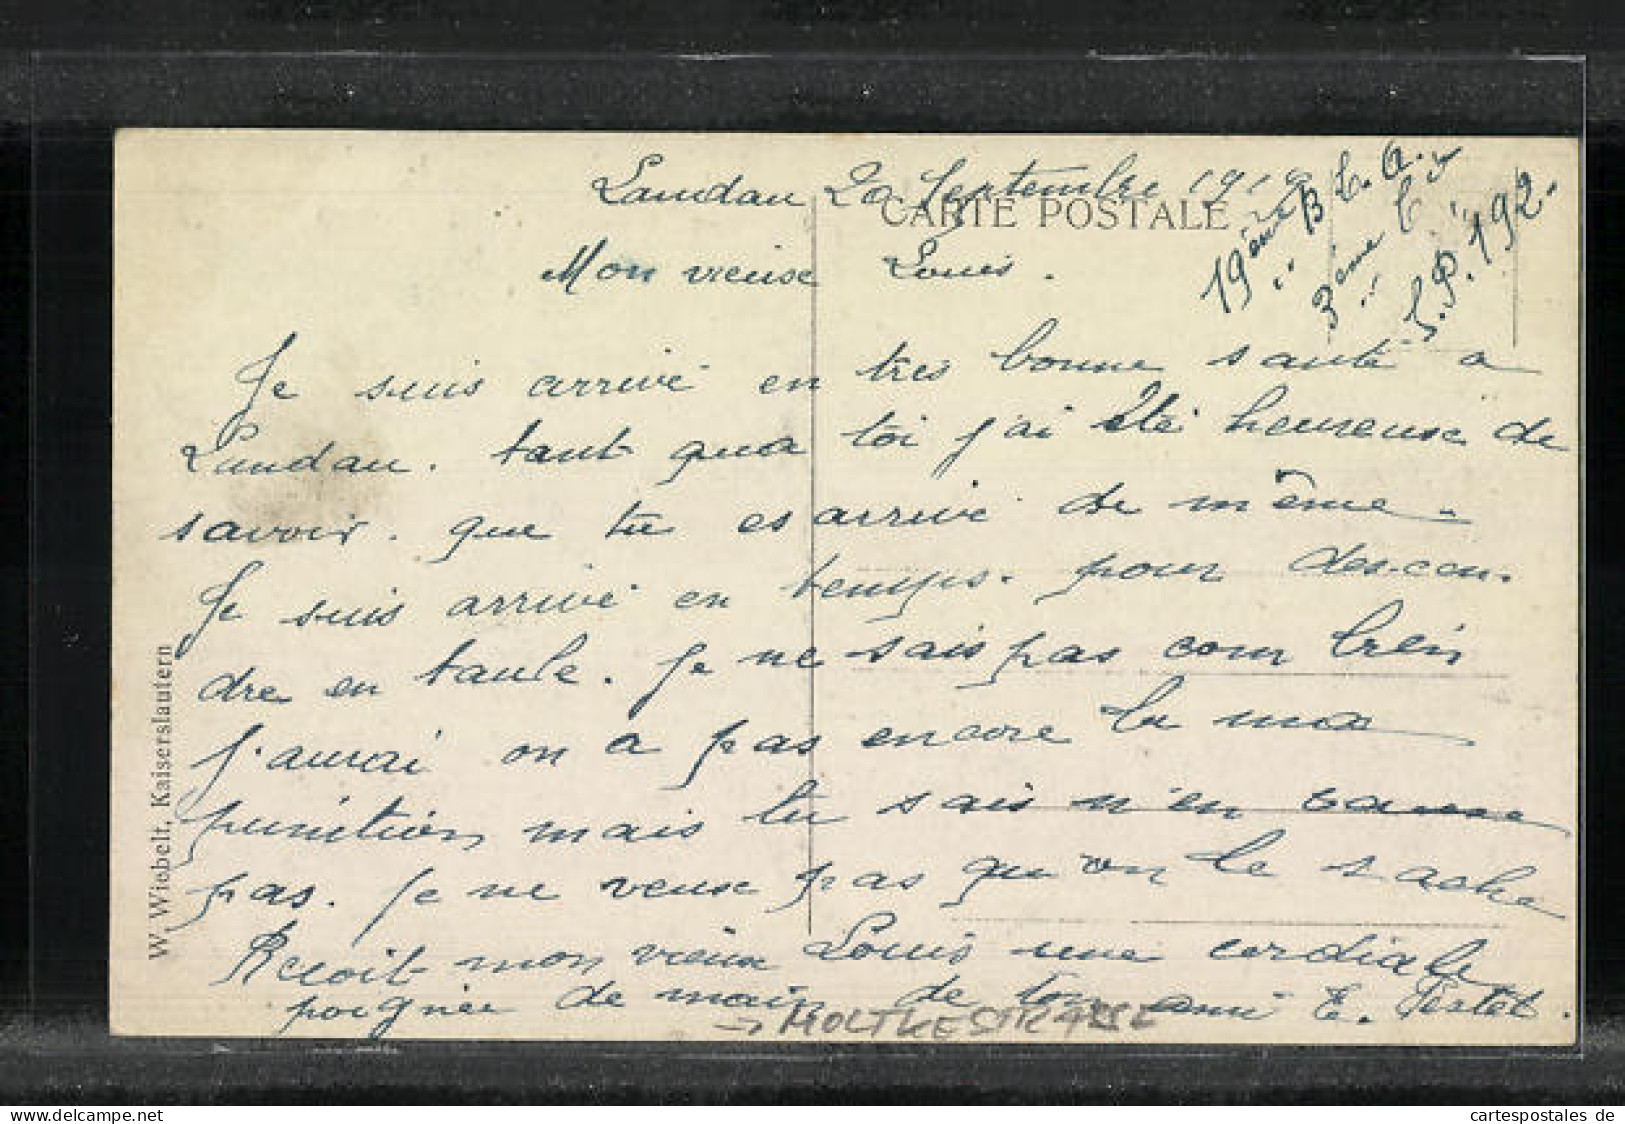 Landau 20 Septembre 1919
CARTE POSTALE
19ème B C. A.
3ème Cie
S.P. 192.
Mon vieuse Louis.
Je suis arrivé en tres bonne santé a
Landau. tant qua toi j'ai été heureuse de
savoir. que tu es arrivé de même.
Je suis arrivé en temps. pour descen.
dre en taule. Je ne sais pas com bien
j'aurai on a pas encore lu ma
punition mais tu sais n'en cause
pas. Je ne veuse pas qu'on le sache
Recoit mon vieux Louis une cordiale
poignée de main de ton ami E. Testet.
→ MOLTKESTRASSE
W. Wiebelt, Kaiserslautern
cartespostales de